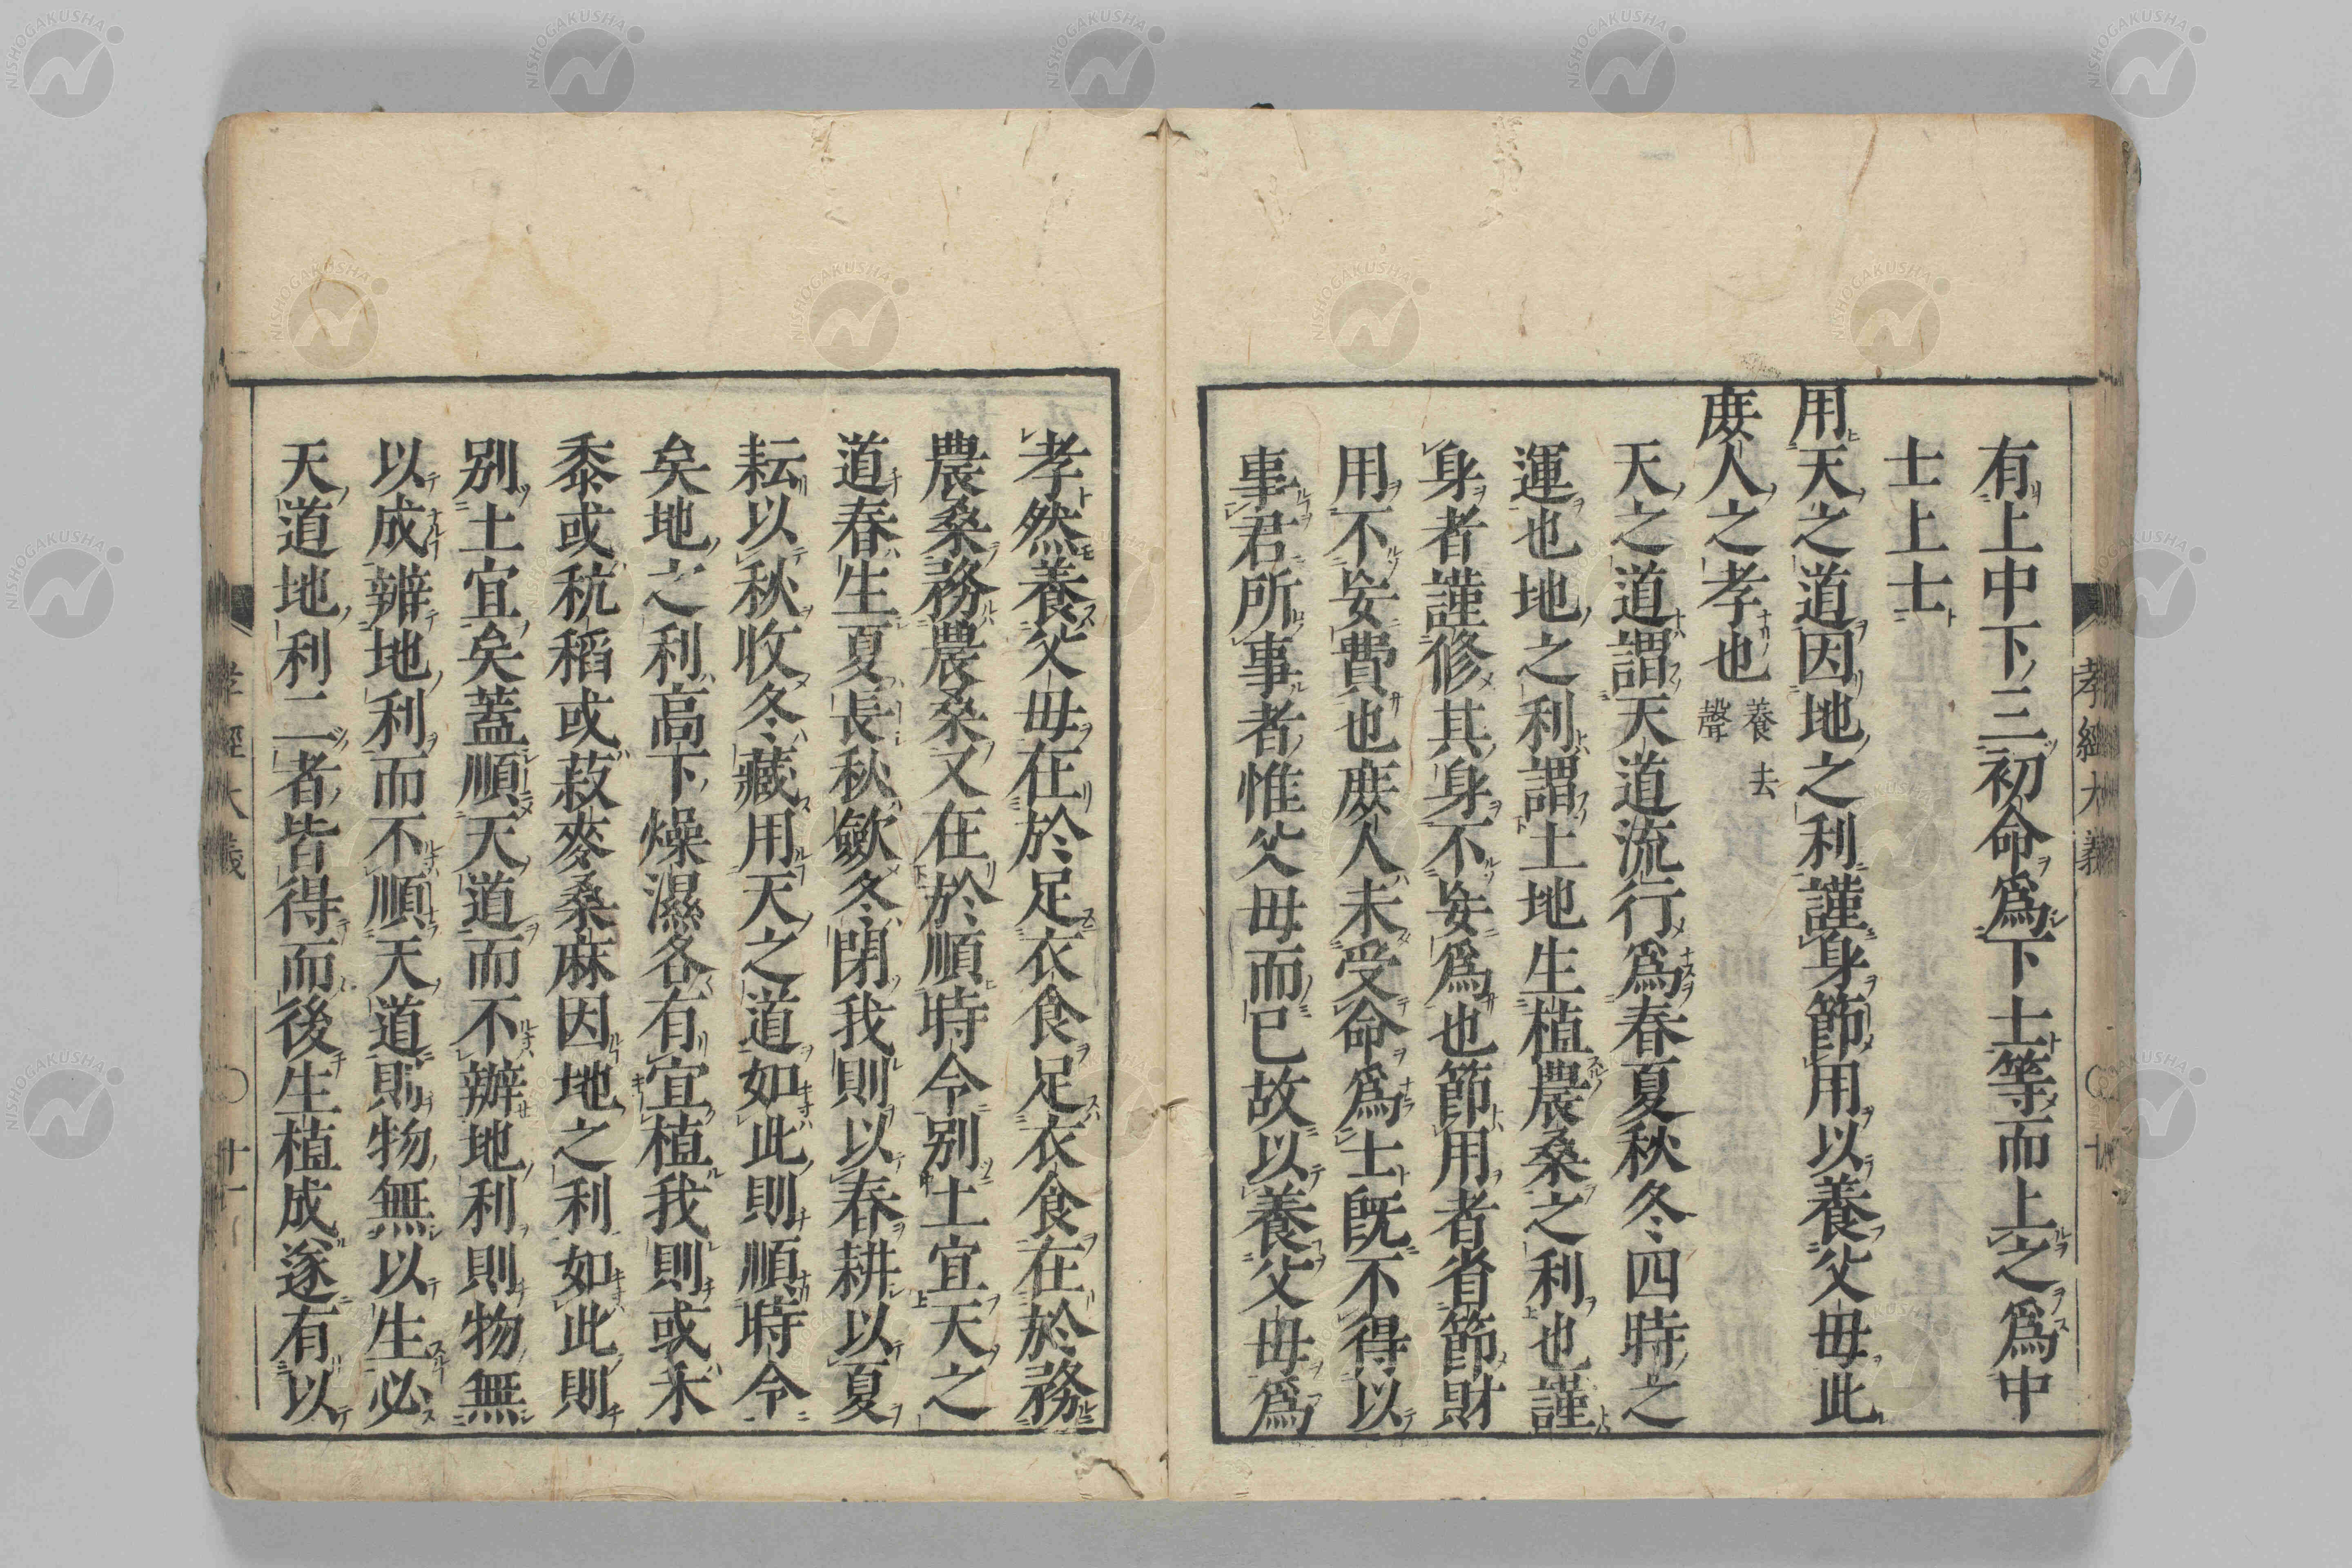 有上中下三初命爲下士等而上之爲中
士上士
用天之道因地之利謹身節用以養父母此
庶人之孝也 養去聲
天之道謂天道流行爲春夏秋冬四時之
運也地之利謂土地生植農桑之利也謹
身者謹修其身不妄爲也節用者省節財
用不妄費也庶人未受命爲士既不得以
事君所事者惟父母而已故以養父母爲
孝然養父母在於足衣食足衣食在於務
農桑務農桑又在於順時令別土宜天之
道春生夏長秋斂冬閉我則以春耕以夏
耘以秋收冬藏用天之道如此則順時令
矣地之利高下燥濕各有宜植我則或禾
黍或秔稻或菽麥桑麻因地之利如此則
別土宜矣蓋順天道而不辦地利則物無
以成辦地利而不順天道則物無以生必
天道地利二者皆得而後生植成遂有以
孝經大義
十
孝經大義
十一
NISHOGAKUSHA